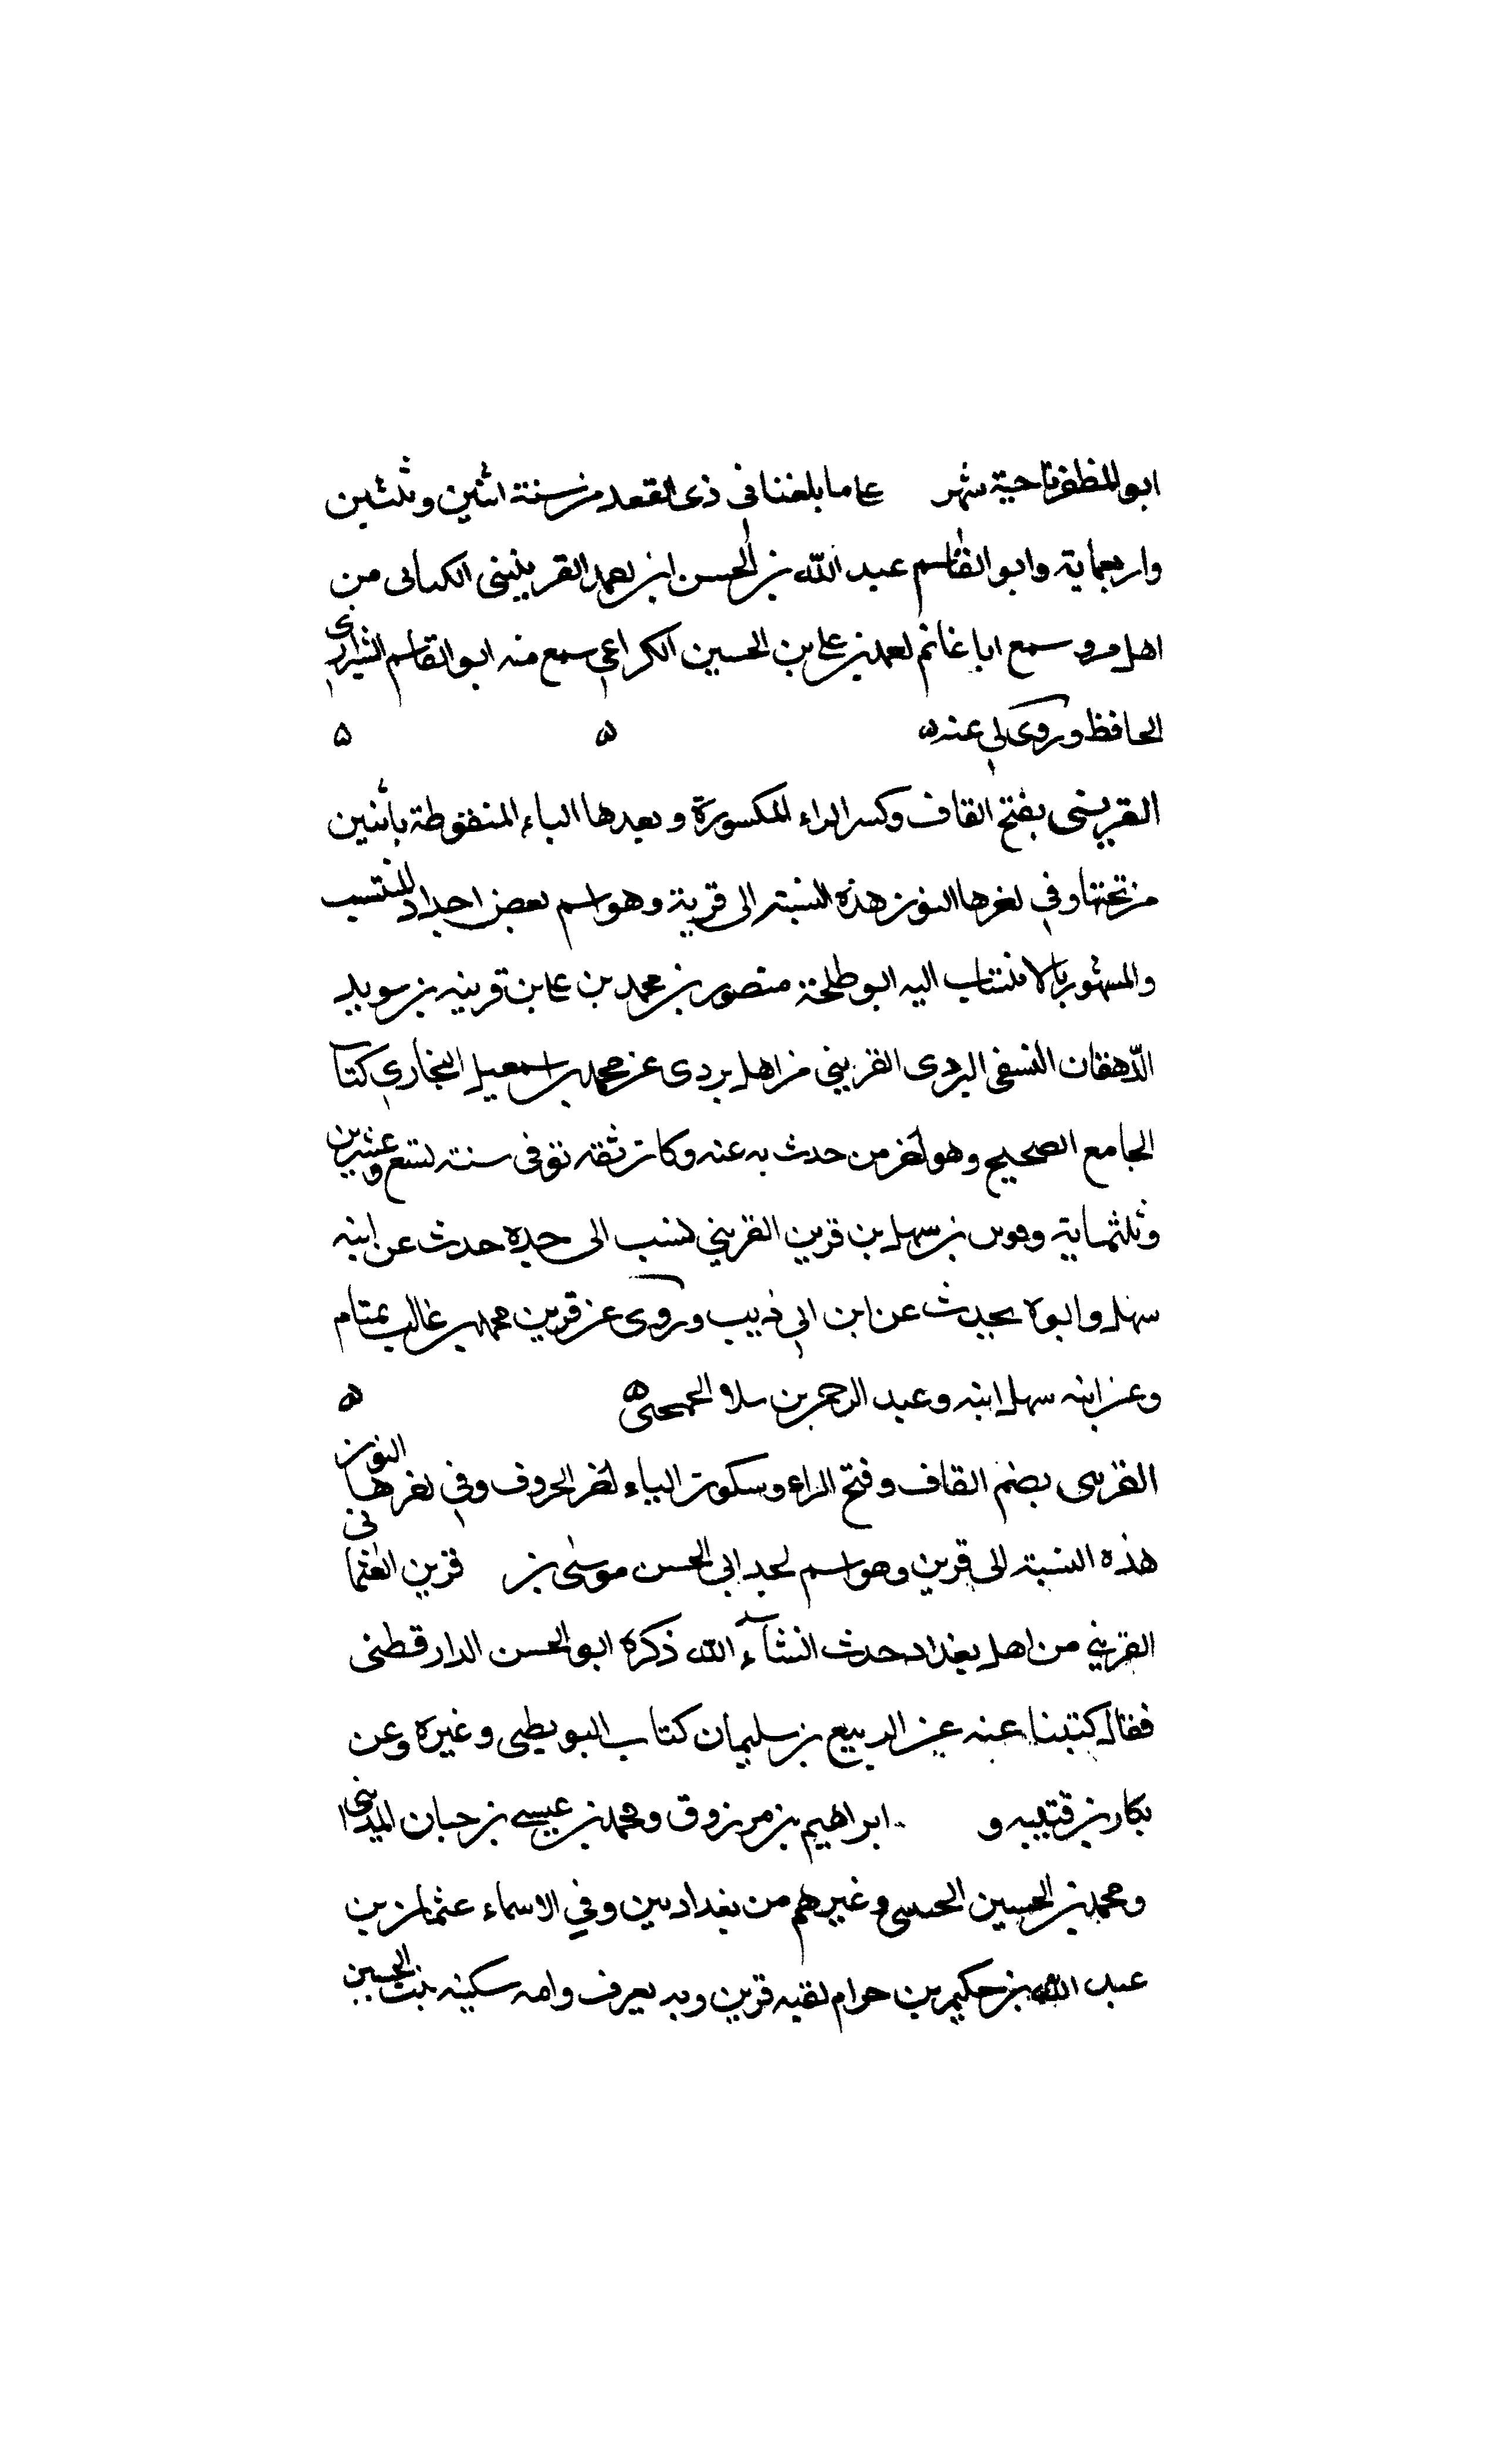 ابو المظفر ناحية شهر على ما بلغنا فى ذى القعد من سنة اثنين وثلثين
واربعماية وابو القاسم عبد الله بن الحسن ابن محمد القرينينى الكسائى من
اهل مرو سمع ابا غانم احمد بن على بن الحسين الكراعى سمع منه ابو القاسم الشيرازى
الحافظ وروى لى عنه ه ه ه
القرينى بفتح القاف وكسر الراء المكسورة وبعدها الياء المنقوطة باثنين
من تحتها وفى اخرها النون هذه النسبة الى قرينة وهو اسم بعض اجداد المنتسب
والمشهور بالانتساب اليه ابو طلحة منصور بن محمد بن على بن قرينه بن سويد
الدهقان النسفى البزدى القرينى من اهل بزدى عن محمد بن اسمعيل البخارى كتاب
الجامع الصحيح وهو اخر من حدث به عنه وكان ثقه توفى سنة تسع وعشرين
وثلثماية بن سهل بن قرين القرينى نسب الى جده حدث عن ابيه
سهل وابوه يحدث عن ابن ابى ذيب وروى عن قرين محمد بن غالب تمتام
وعن ابنه سهل ابنه وعبد الرحمن بن سلام الجمحى ه ه
القرينى بضم القاف وفتح الراء وسكون الياء اخر الحروف وفى اخرها النون
هذه النسبة الى قرين وهو اسم لجد ابى الحسن موسى بن قرين العثمانى
القرينى من اهل بغداد حدث انشآء الله ذكره ابو الحسن الدارقطنى
فقال كتبنا عنه عن الربيع بن سليمان كتاب البويطى وغيره وعن
بكار بن قتيبه و ابراهيم بن مرزوق ومحمد بن عيسى بن حبان المدائنى
ومحمد بن الحسين وغيرهم من بغداديين وفي الاسماء عثمان بن
عبد الله بن حكيم بن حرام لقبه قرين وبه يعرف وامه سكينه بنت الحسين